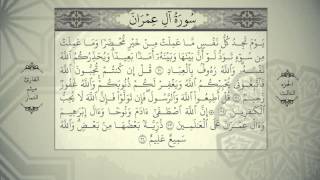 سُورَةُ آلِ عِمْرَانَ
يَوْمَ تَجِدُ كُلُّ نَفْسٍ مَّا عَمِلَتْ مِنْ خَيْرٍ مُّحْضَرًا وَمَا عَمِلَتْ
مِن سُوءٍ تَوَدُّ لَوْ أَنَّ بَيْنَهَا وَبَيْنَهُ أَمَدًا بَعِيدًا وَيُحَذِّرُكُمُ اللَّهُ
نَفْسَهُ وَاللَّهُ رَءُوفٌ بِالْعِبَادِ ٣٠ قُلْ إِن كُنتُمْ تُحِبُّونَ اللَّهَ
فَاتَّبِعُونِي يُحْبِبْكُمُ اللَّهُ وَيَغْفِرْ لَكُمْ ذُنُوبَكُمْ وَاللَّهُ غَفُورٌ
رَّحِيمٌ ٣١ قُلْ أَطِيعُوا اللَّهَ وَالرَّسُولَ فَإِن تَوَلَّوْا فَإِنَّ اللَّهَ لَا يُحِبُّ
الْكَافِرِينَ ٣٢ إِنَّ اللَّهَ اصْطَفَى آدَمَ وَنُوحًا وَآلَ إِبْرَاهِيمَ
وَآلَ عِمْرَانَ عَلَى الْعَالَمِينَ ٣٣ ذُرِّيَّةً بَعْضُهَا مِن بَعْضٍ وَاللَّهُ
سَمِيعٌ عَلِيمٌ ٣٤
الجزء
الثالث
القارئ
ميثم
التمار